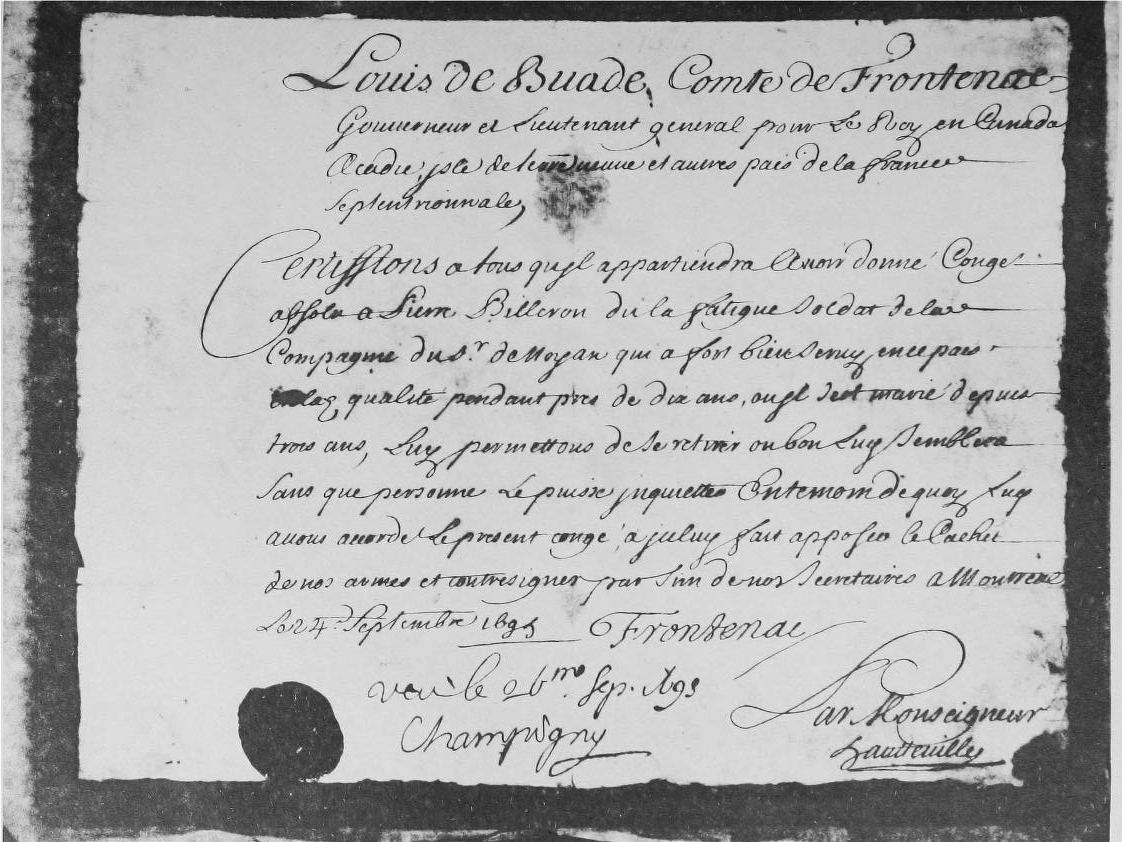 Louis de Buade, Comte de Frontenac
Gouuerneur et Lieutenant general pour Le Roy en Canada
Acadie, jsle de terre neuue et autres pais de la france
Septentrionnale,
Certiffions a tous qujl appartiendra L'Auoir donné Congé
absolu a Pierre Billeron dit la fatigue Soldat de la
Compagnie du Sr. de Noyan qui a fort bien Seruy en ce pais
en laq qualité pendant pres de dix ans, ou jl s'est marié depuis
trois ans, Luy permettons de Se retirer ou bon Luy Semblera
Sans que personne Le puisse jnquietter En temoin de quoy Luy
auons accordé Le present congé, a jceluy fait apposer le Cachet
de nos armes et contresigner par L'un de nos Secretaires a Montreal
Le 24e. Septembre 1695 Frontenac
veu le 26me. Sep. 1695
Champigny
Par Monseigneur
hautteville